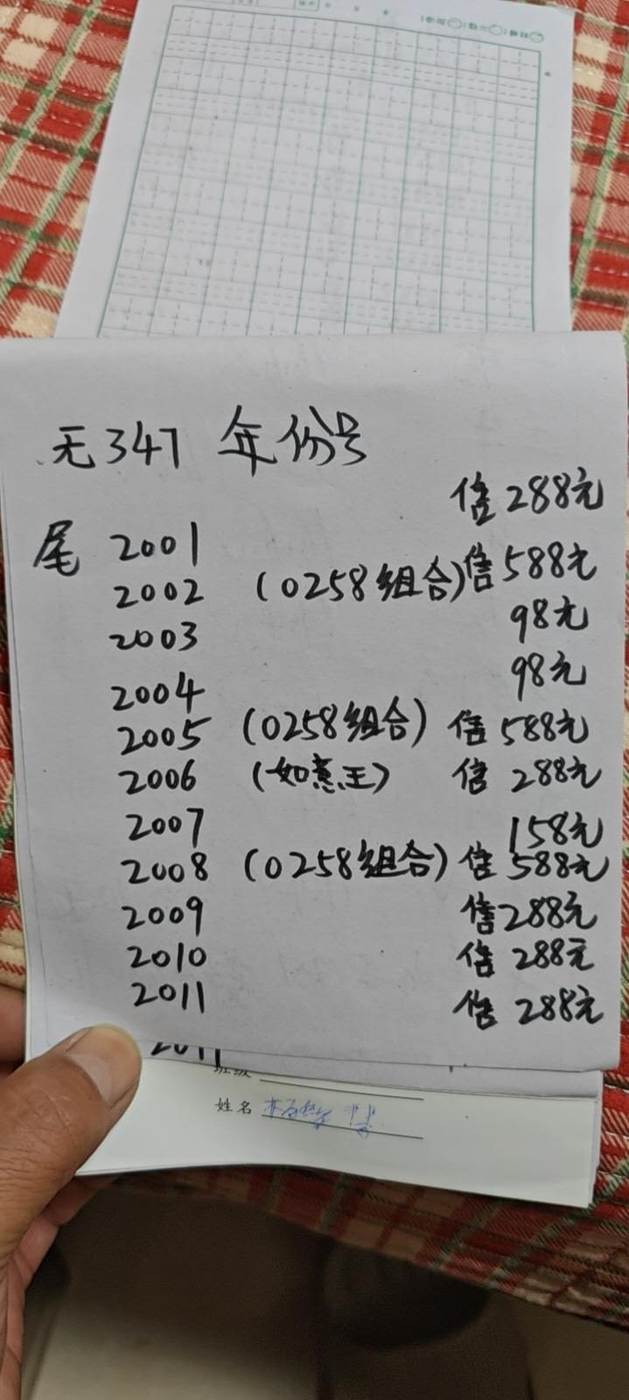 无347 年份号
售288元
尾 2001
2002 (0258组合)售588元
2003 98元
2004 98元
2005 (0258组合) 售588元
2006 (如意王) 售288元
2007 158元
2008 (0258组合) 售588元
2009 售288元
2010 售288元
2011 售288元
2011
班级
姓名